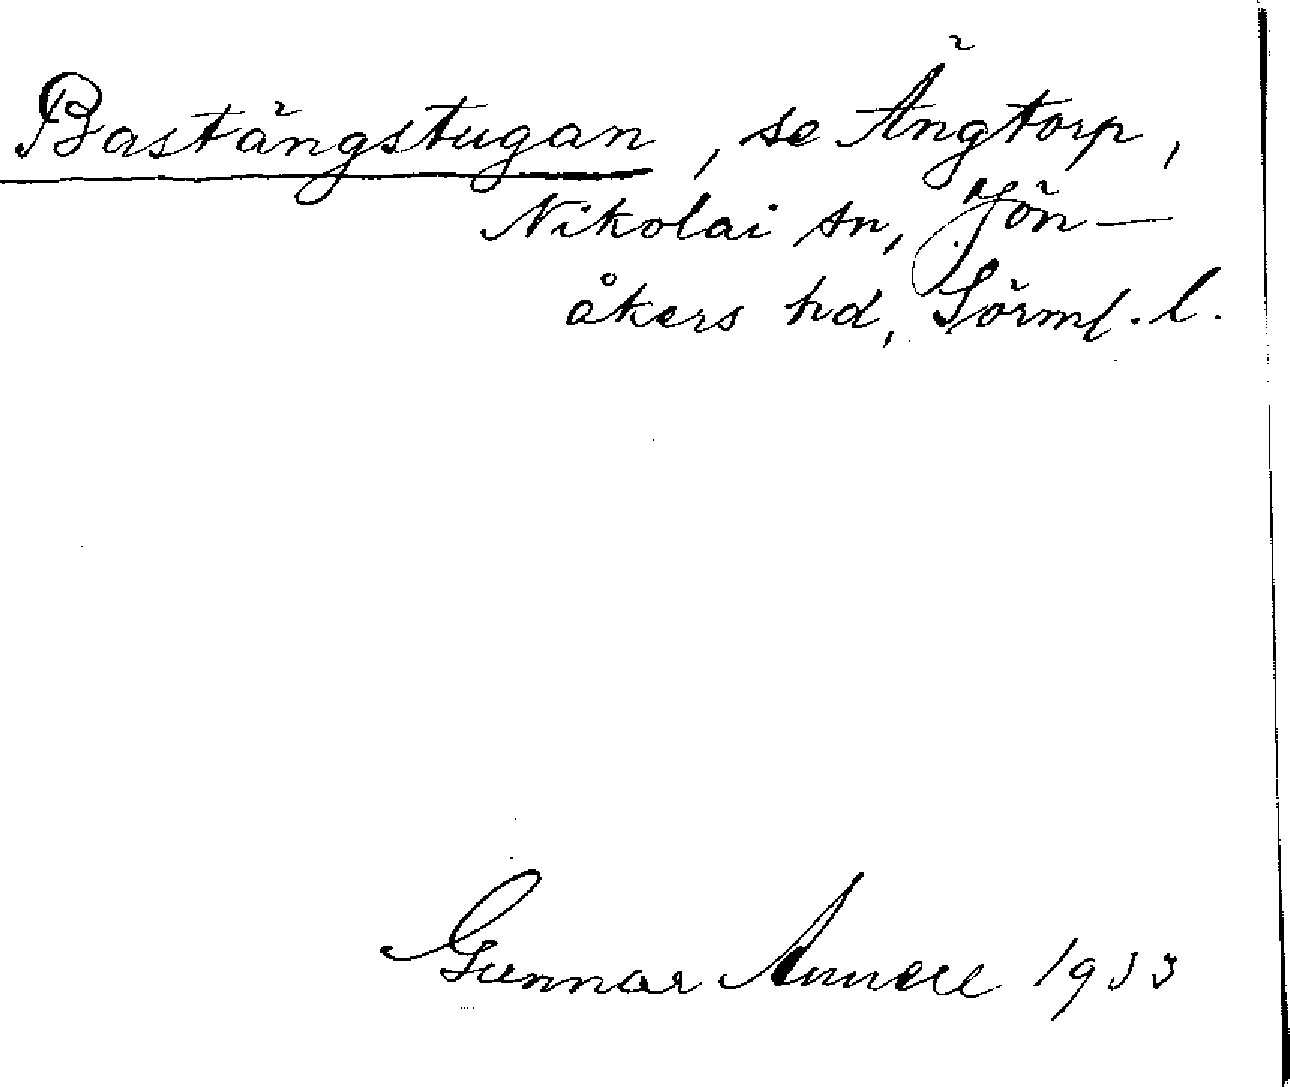 Bastängstugan, se Ängtorp,
Nikolai sn, Jön-
åkers hd, Sörml. l.
Gunnar Annell 1933